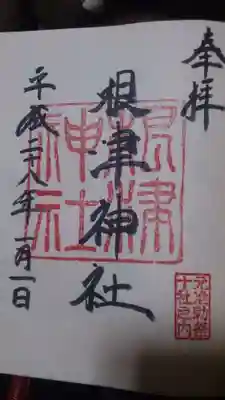 奉拝
根津神社
平成二十八年一月一日
根津
神社
元准勅祭
十社之内